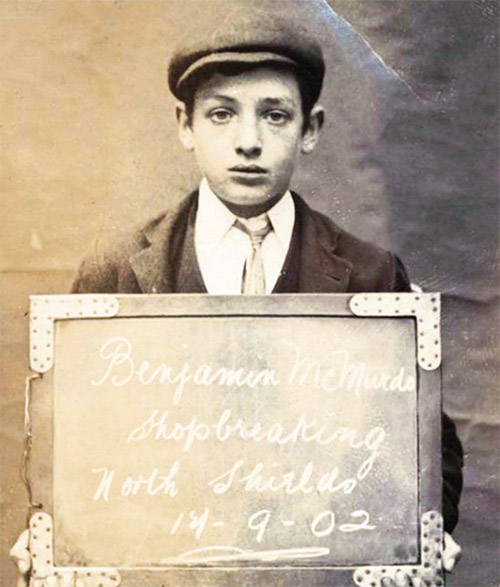 Benjamin McMurdo
Shopbreaking
North Shields
14-9-02